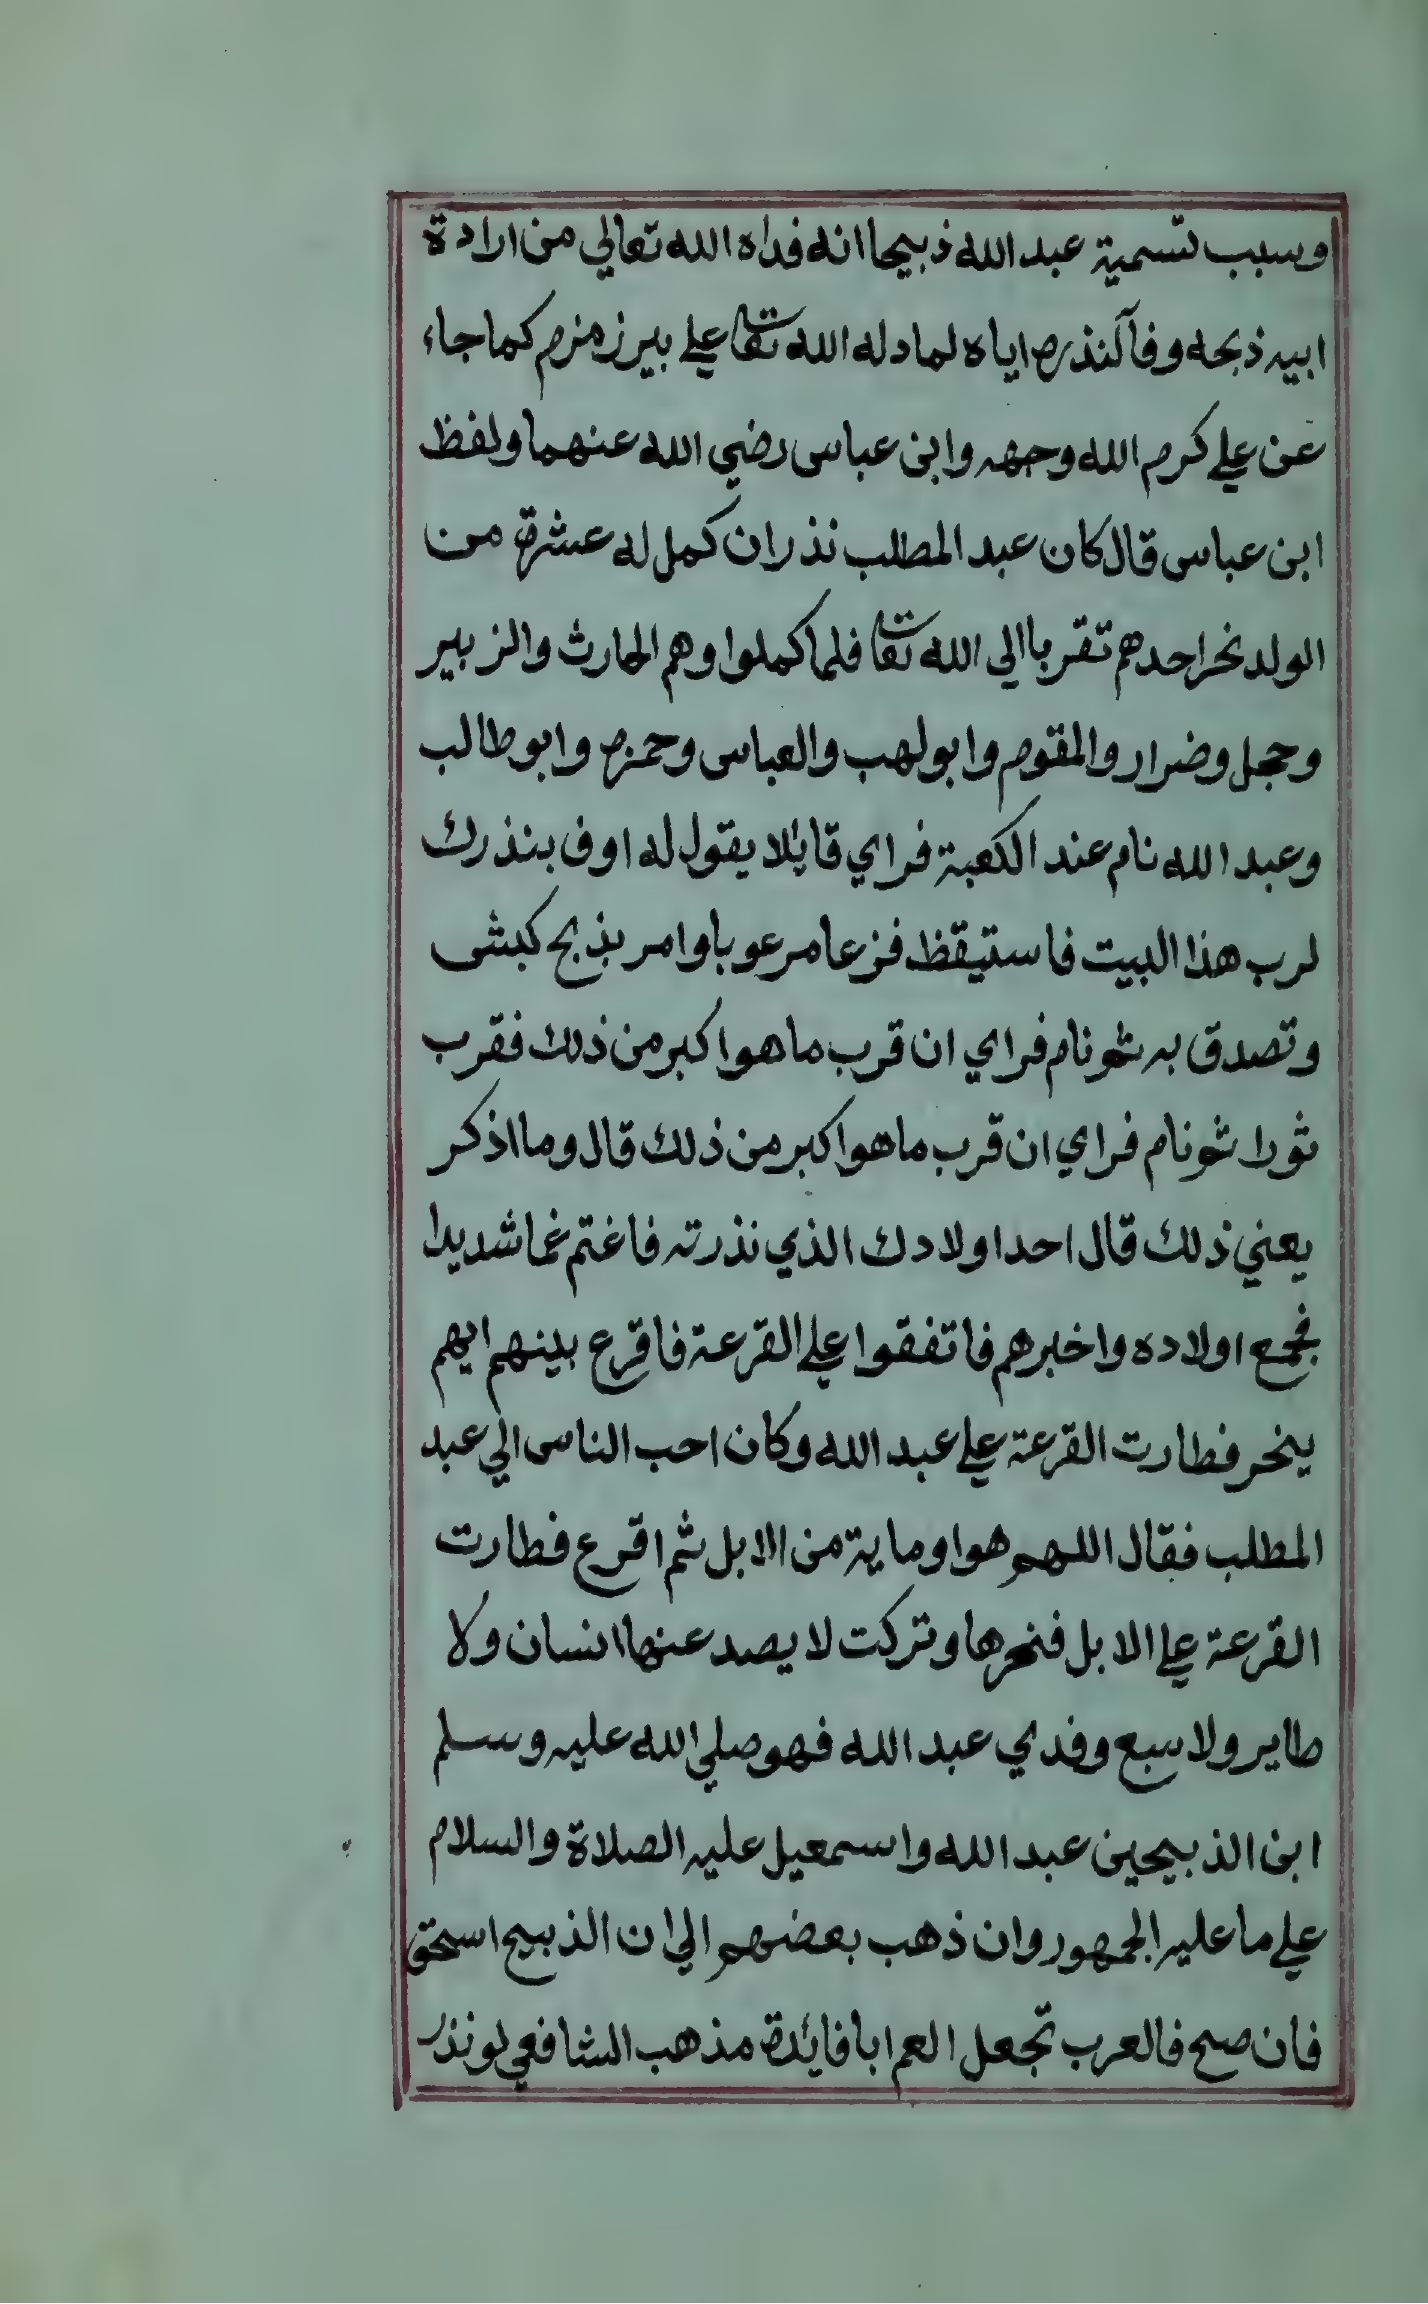 وسبب تسمية عبد الله ذبيحا انه فداه الله تعالي من ارادة
ابيه ذبحه وفآ لنذره اياه لما دله الله تعا علي بير زمزم كما جاء
عن علي كرم الله وجهه وابن عباس رضي الله عنهما ولفظ
ابن عباس قال كان عبد المطلب نذر ان كمل له عشرة من
الولد نحر احدهم تقربا الي الله تعا فلما كملوا وهم الحارث والزبير
وحجل وضرار والمقوم وابو لهب والعباس وحمزه وابو طالب
وعبد الله نام عند الكعبة فراي قائلا يقول له اوف بنذرك
لرب هذا البيت فاستيقظ فزعا مرعوبا وامر بذبح كبش
وتصدق به ثم نام فراي ان قرب ما هو اكبر من ذلك فقرب
ثورا ثم نام فراي ان قرب ما هو اكبر من ذلك قال وما اذكر
يعني ذلك قال احد اولادك الذي نذرته فاغتم غما شديدا
فجمع اولاده واخبرهم فاتفقوا علي القرعة فاقرع بينهم ايهم
ينحر فطارت القرعة علي عبد الله وكان احب الناس الي عبد
المطلب فقال اللهم هو او ماية من الابل ثم اقرع فطارت
القرعة علي الابل فنحرها وتركت لا يصد عنها انسان ولا
طاير ولا سبع وفدي عبد الله فهو صلي الله عليه وسلم
ابن الذبيحين عبد الله واسمعيل عليه الصلاة والسلام
علي ما عليه الجمهور وان ذهب بعضهم الي ان الذبيح اسحق
فان صح فالعرب تجعل العم ابا فائدة مذهب الشافعي لو نذر